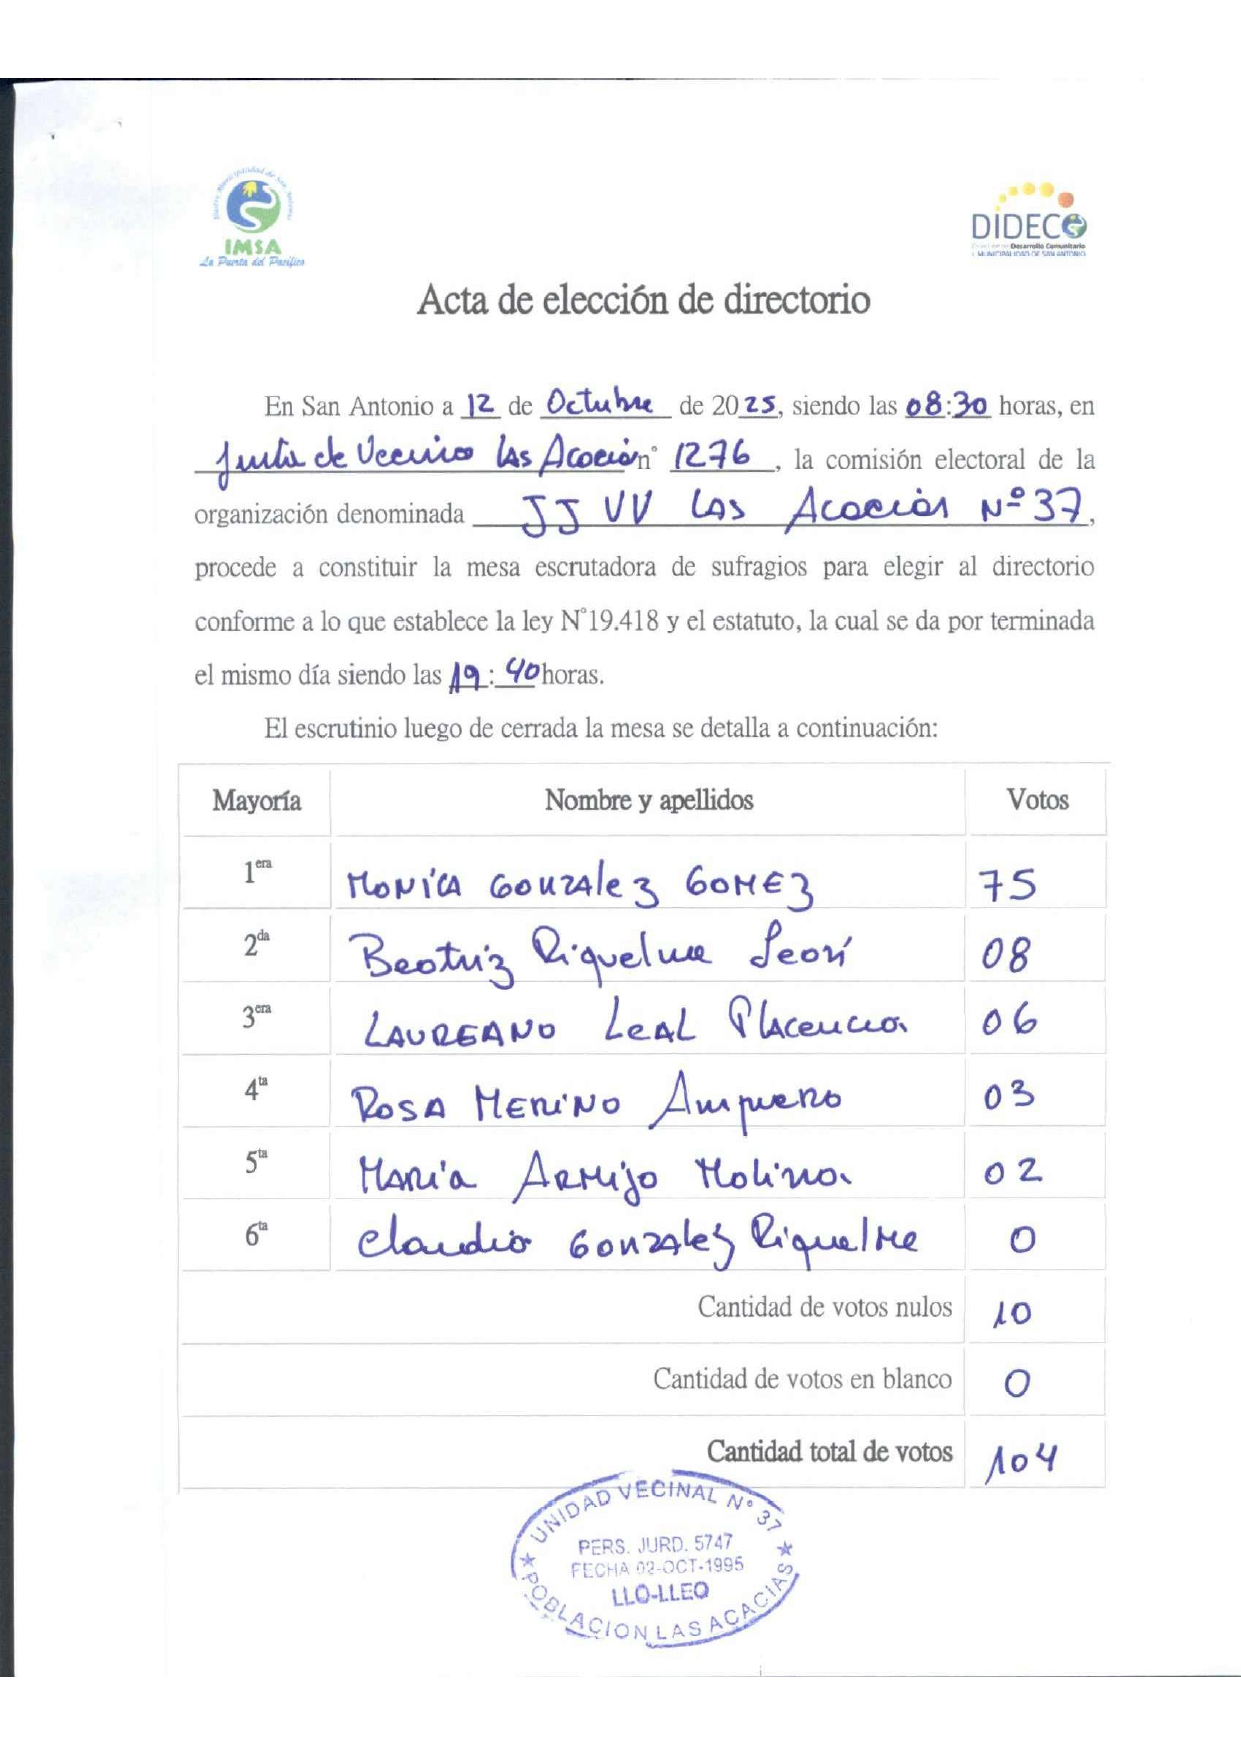 Ilustre Municipalidad de San Antonio
IMSA
La Puerta del Pacífico
DIDECO
Desarrollo Comunitario
I. MUNICIPALIDAD DE SAN ANTONIO
Acta de elección de directorio
En San Antonio a 12 de Octubre de 2025, siendo las 08:30 horas, en
Junta de Vecinos Las Acacias n° 1276, la comisión electoral de la
organización denominada JJ VV Las Acacias Nº 37,
procede a constituir la mesa escrutadora de sufragios para elegir al directorio
conforme a lo que establece la ley N°19.418 y el estatuto, la cual se da por terminada
el mismo día siendo las 19:40 horas.
El escrutinio luego de cerrada la mesa se detalla a continuación:
Mayoría Nombre y apellidos Votos
1era MONICA GONZALEZ GOMEZ 75
2da Beatriz Riquelme Leon 08
3era LAUREANO LEAL Placencia 06
4ta ROSA MERINO Ampuero 03
5ta María ARMIJO Molina 02
6ta Claudio GONZALEZ RIQUELME 0
Cantidad de votos nulos 10
Cantidad de votos en blanco 0
Cantidad total de votos 104
UNIDAD VECINAL N° 37
PERS. JURD. 5747
FECHA 02-OCT-1995
LLO-LLEO
POBLACION LAS ACACIAS